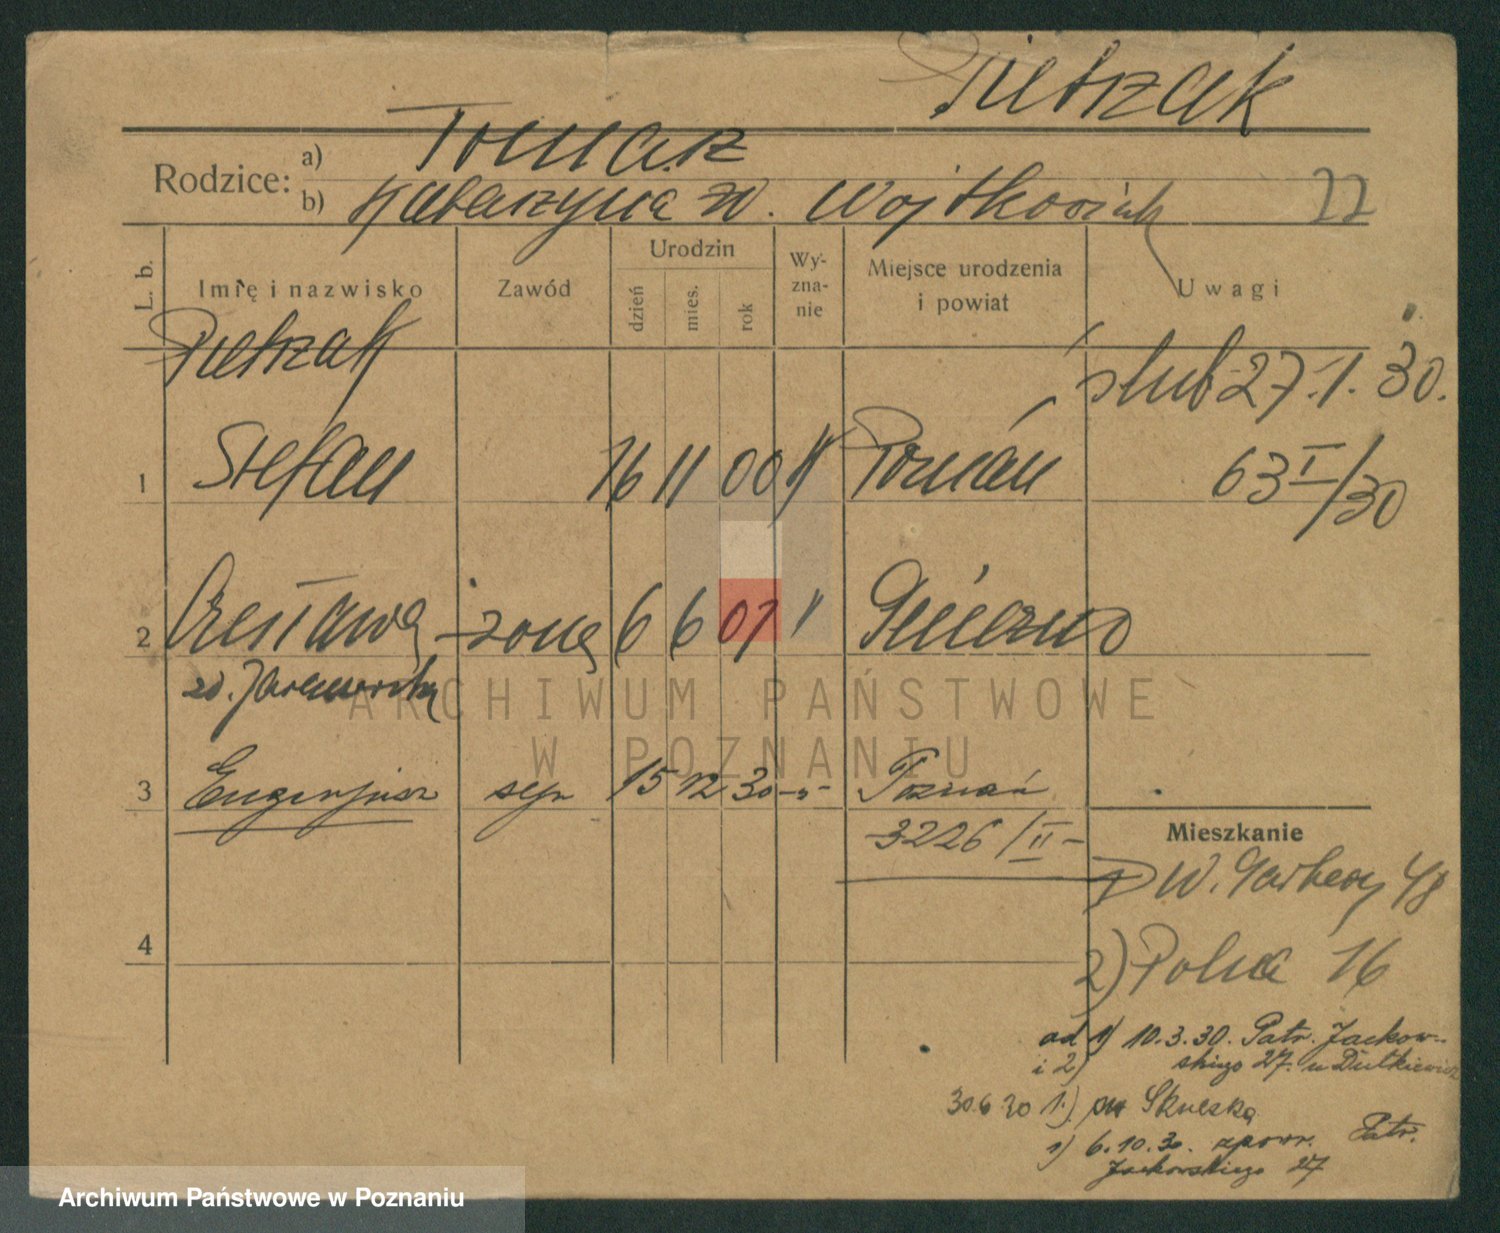 Pietrzak
Rodzice: a) Tomasz
b) Katarzyna zd. Wojtkowiak 22
L. b. Imię i nazwisko Zawód Urodzin dzień mies. rok Wy-zna-nie Miejsce urodzenia i powiat Uwagi
Pietrzak ślub 27.1.30.
1 Stefan 16 11 00 Poznań 63 I/30
2 Czesława żona 6 6 07 " Gniezno
zd. Jaranowska
3 Eugenjusz syn 15 12 30 -"- Poznań
3226/II-
Mieszkanie
1) W. Garbary 48
4
2) Polna 16
ad 1) 10.3.30. Patr. Jackow-
i 2) skiego 27. u Dutkiewicz
30.6 30 1.) Skulska
1) 6.10.30. zpowr. Patr.
Jackowskiego 27
ARCHIWUM PAŃSTWOWE
W POZNANIU
Archiwum Państwowe w Poznaniu